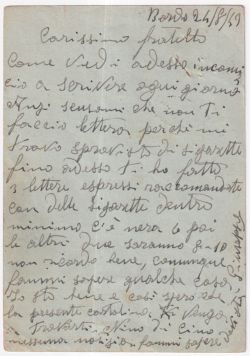 Bardo 24/8/49
Carissimo fratello
Come vedi adesso incomin
cio a scrivere ogni giorno
Anzi scusami che non ti
faccio lettera perchè mi
trovo sprovisto di sigarette
fino adesso ti ho fatto
3 lettere espressi raccomandate
con delle sigarette dentro
minimo c'è nera 6 poi
le altri due saranno 8-10
non ricordo bene, comunque
fammi sapere qualche cosa
Io sto bene e così spero che
la presente cartolina ti venga
a trovarti. Nino di Gino
nessuna notizia fammi sapere
Giuseppe